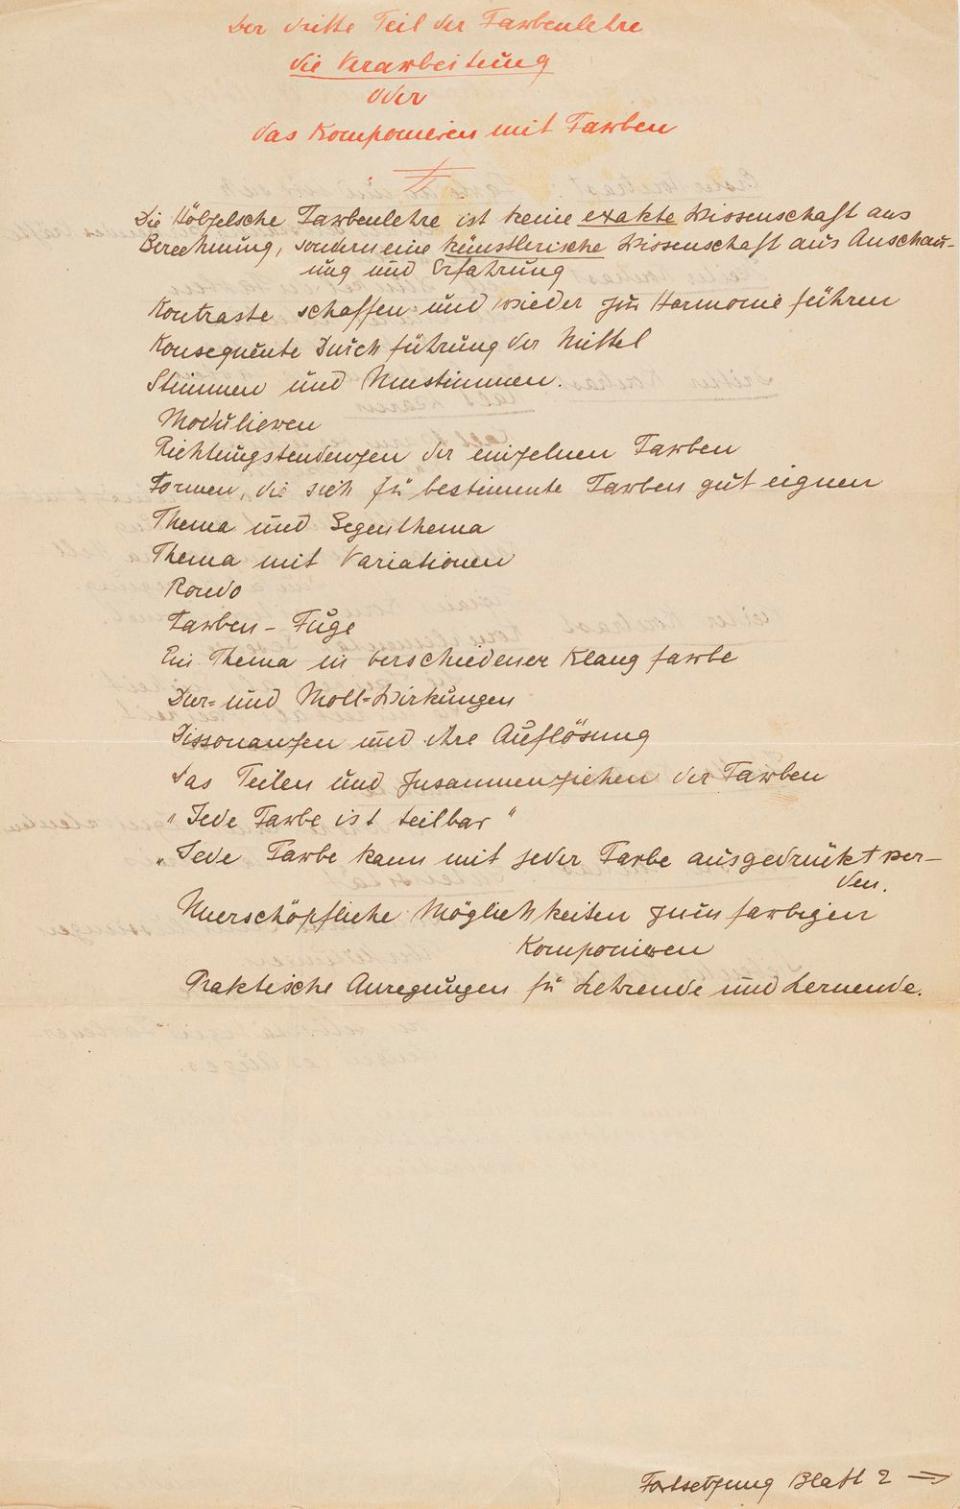 Der dritte Teil der Farbenlehre
die Verarbeitung
oder
das Komponieren mit Farben
Die Hölzelsche Farbenlehre ist keine exakte Wissenschaft aus
Berechnung, sondern eine künstlerische Wissenschaft aus Anschau-
ung und Erfahrung
Kontraste schaffen und wieder zur Harmonie führen
Konsequente Durchführung der Mittel
Stimmen und Umstimmen.
Modulieren
Richtungstendenzen der einzelnen Farben
Formen, die sich für bestimmte Farben gut eignen
Thema und Gegenthema
Thema mit Variationen
Rondo
Farben-Fuge
Ein Thema in verschiedener Klangfarbe
Dur- und Moll-Wirkungen
Dissonanzen und ihre Auflösung
Das Teilen und Zusammenziehen der Farben
"Jede Farbe ist teilbar"
"Jede Farbe kann mit jeder Farbe ausgedrückt wer-
den.
Unerschöpfliche Möglichkeiten zum farbigen
Komponieren
Praktische Anregungen für Lehrende und Lernende.
Fortsetzung Blatt 2 ⇒